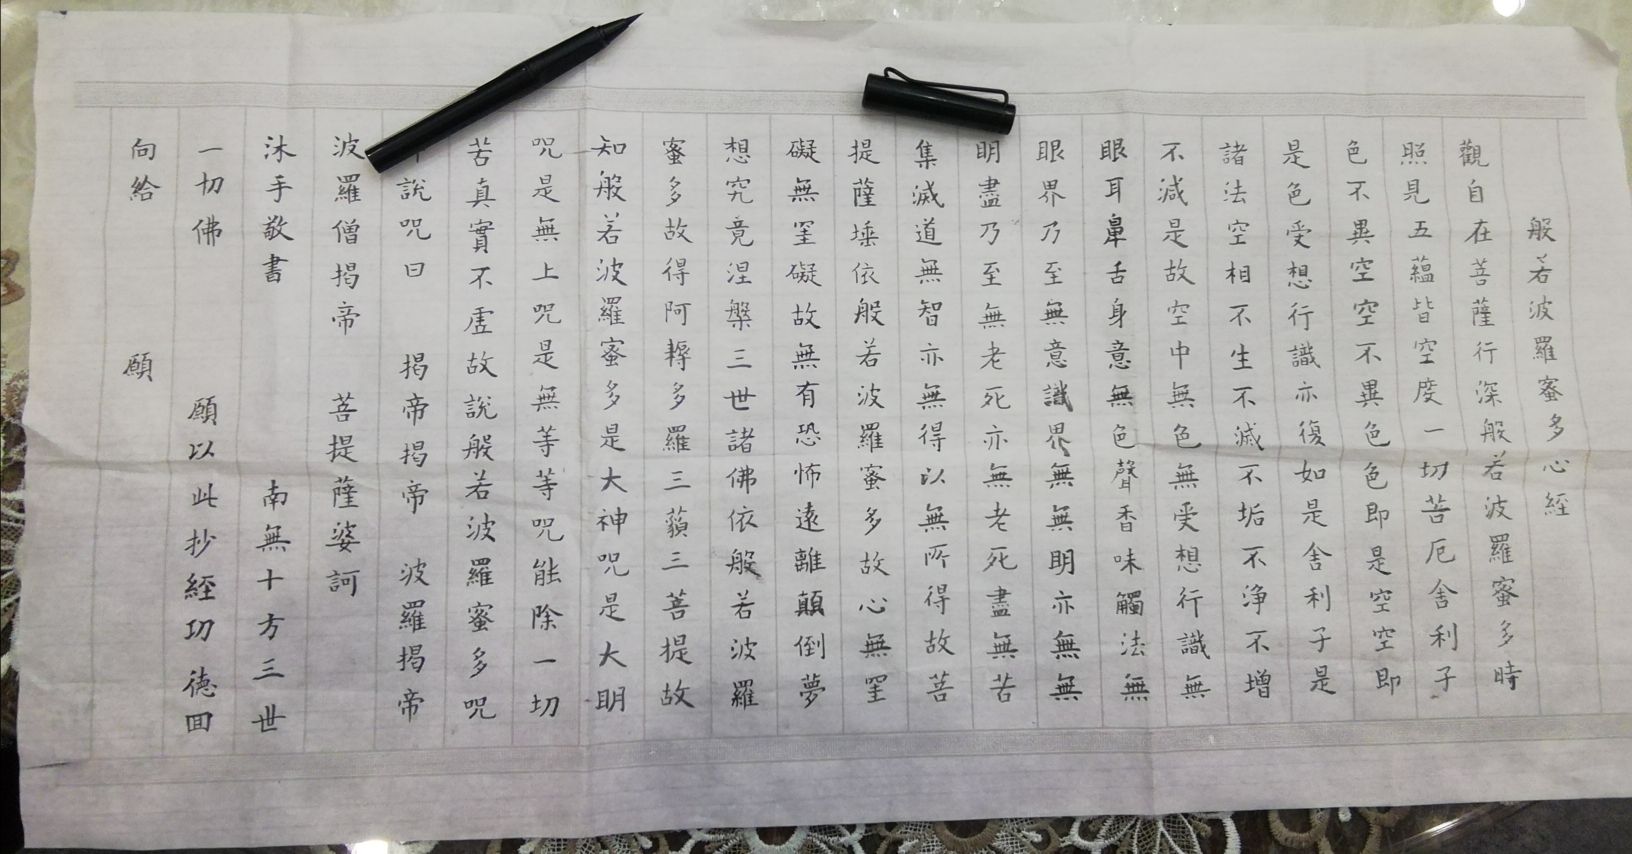 般若波羅蜜多心經
觀自在菩薩行深般若波羅蜜多時
照見五蘊皆空度一切苦厄舍利子
色不異空空不異色色即是空空即
是色受想行識亦復如是舍利子是
諸法空相不生不滅不垢不淨不增
不減是故空中無色無受想行識無
眼耳鼻舌身意無色聲香味觸法無
眼界乃至無意識界無無明亦無無
明盡乃至無老死亦無老死盡無苦
集滅道無智亦無得以無所得故菩
提薩埵依般若波羅蜜多故心無罣
礙無罣礙故無有恐怖遠離顛倒夢
想究竟涅槃三世諸佛依般若波羅
蜜多故得阿耨多羅三藐三菩提故
知般若波羅蜜多是大神咒是大明
咒是無上咒是無等等咒能除一切
苦真實不虛故說般若波羅蜜多咒
說咒曰 揭帝揭帝 波羅揭帝
波羅僧揭帝 菩提薩婆訶
沐手敬書 南無十方三世
一切佛 願以此抄經功德回
向給 願